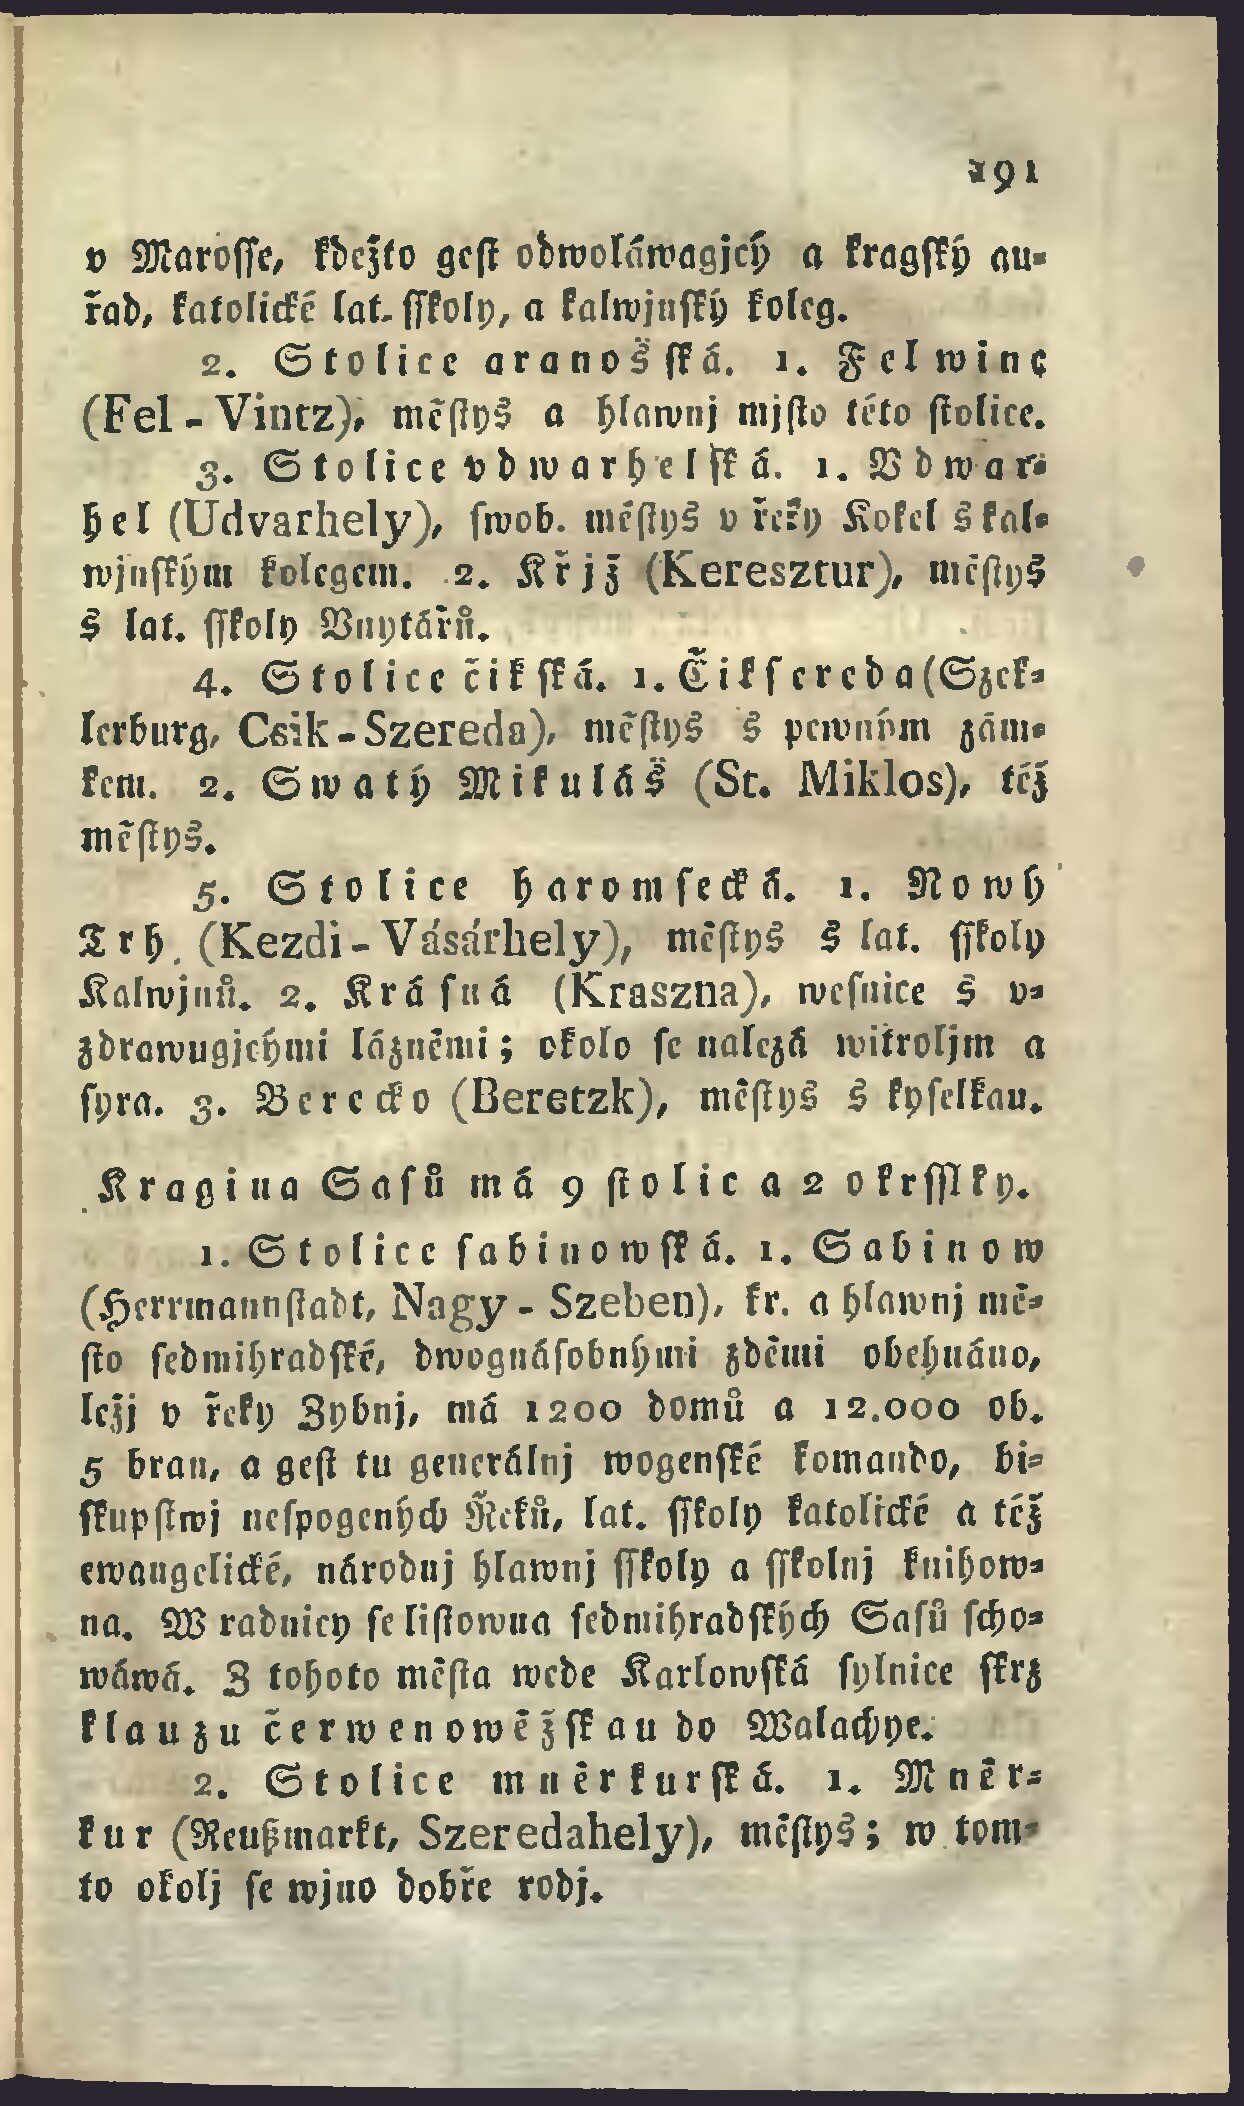 191
v Marosse, kdežto gest odwoláwagjcý a kragský au-
řad, katolické lat. sskoly, a kalwjnský koleg.
2. Stolice aranošská. 1. Felwinc
(Fel-Vintz), městys a hlawnj mjsto této stolice.
3. Stolice vdwarhelská. 1. Vdwar-
hel (Udvarhely), swob. městys v řeky Kokel s kal-
wjnským kolegem. 2. Křjž (Keresztur), městys
s lat. sskoly Vnytářů.
4. Stolice čikská. 1. Čiksereda (Szek-
lerburg, Csik-Szereda), městys s pewným zám-
kem. 2. Swatý Mikuláš (St. Miklos), též
městys.
5. Stolice haromsecká. 1. Nowý
Trh (Kezdi-Vásárhely), městys s lat. sskoly
Kalwjnů. 2. Krásná (Kraszna), wesnice s v-
zdrawugjcými lázněmi; okolo se nalezá witroljm a
syra. 3. Berecko (Beretzk), městys s kyselkau.
Kragina Sasů má 9 stolic a 2 okrsslky.
1. Stolice sabinowská. 1. Sabinow
(Herrmannstadt, Nagy-Szeben), kr. a hlawnj mě-
sto sedmihradské, dwognásobnými zděmi obehnáno,
ležj v řeky Zybnj, má 1200 domů a 12.000 ob.
5 bran, a gest tu generálnj wogenské komando, bi-
skupstwj nespogených Řeků, lat. sskoly katolické a též
ewangelické, národnj hlawnj sskoly a sskolnj knihow-
na. W radnicy se listowna sedmihradských Sasů scho-
wáwá. Z tohoto města wede Karlowská sylnice skrz
klauzu čerwenowěžskau do Walachye.
2. Stolice mněrkurská. 1. Mněr-
kur (Reußmarkt, Szeredahely), městys; w tom-
to okolj se wjno dobře rodj.